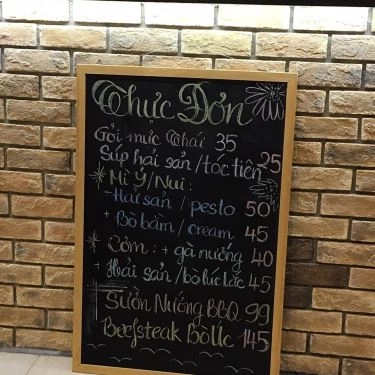 Thực Đơn
Gỏi mực Thái 35
Súp hải sản / tóc tiên 25
* Mì Ý / Nui :
+ Hải sản / pesto 50
+ Bò bằm / cream 45
* Cơm : + gà nướng 40
+ Hải sản / bò lúc lắc 45
Sườn Nướng BBQ 99
Beefsteak Bò Úc 145